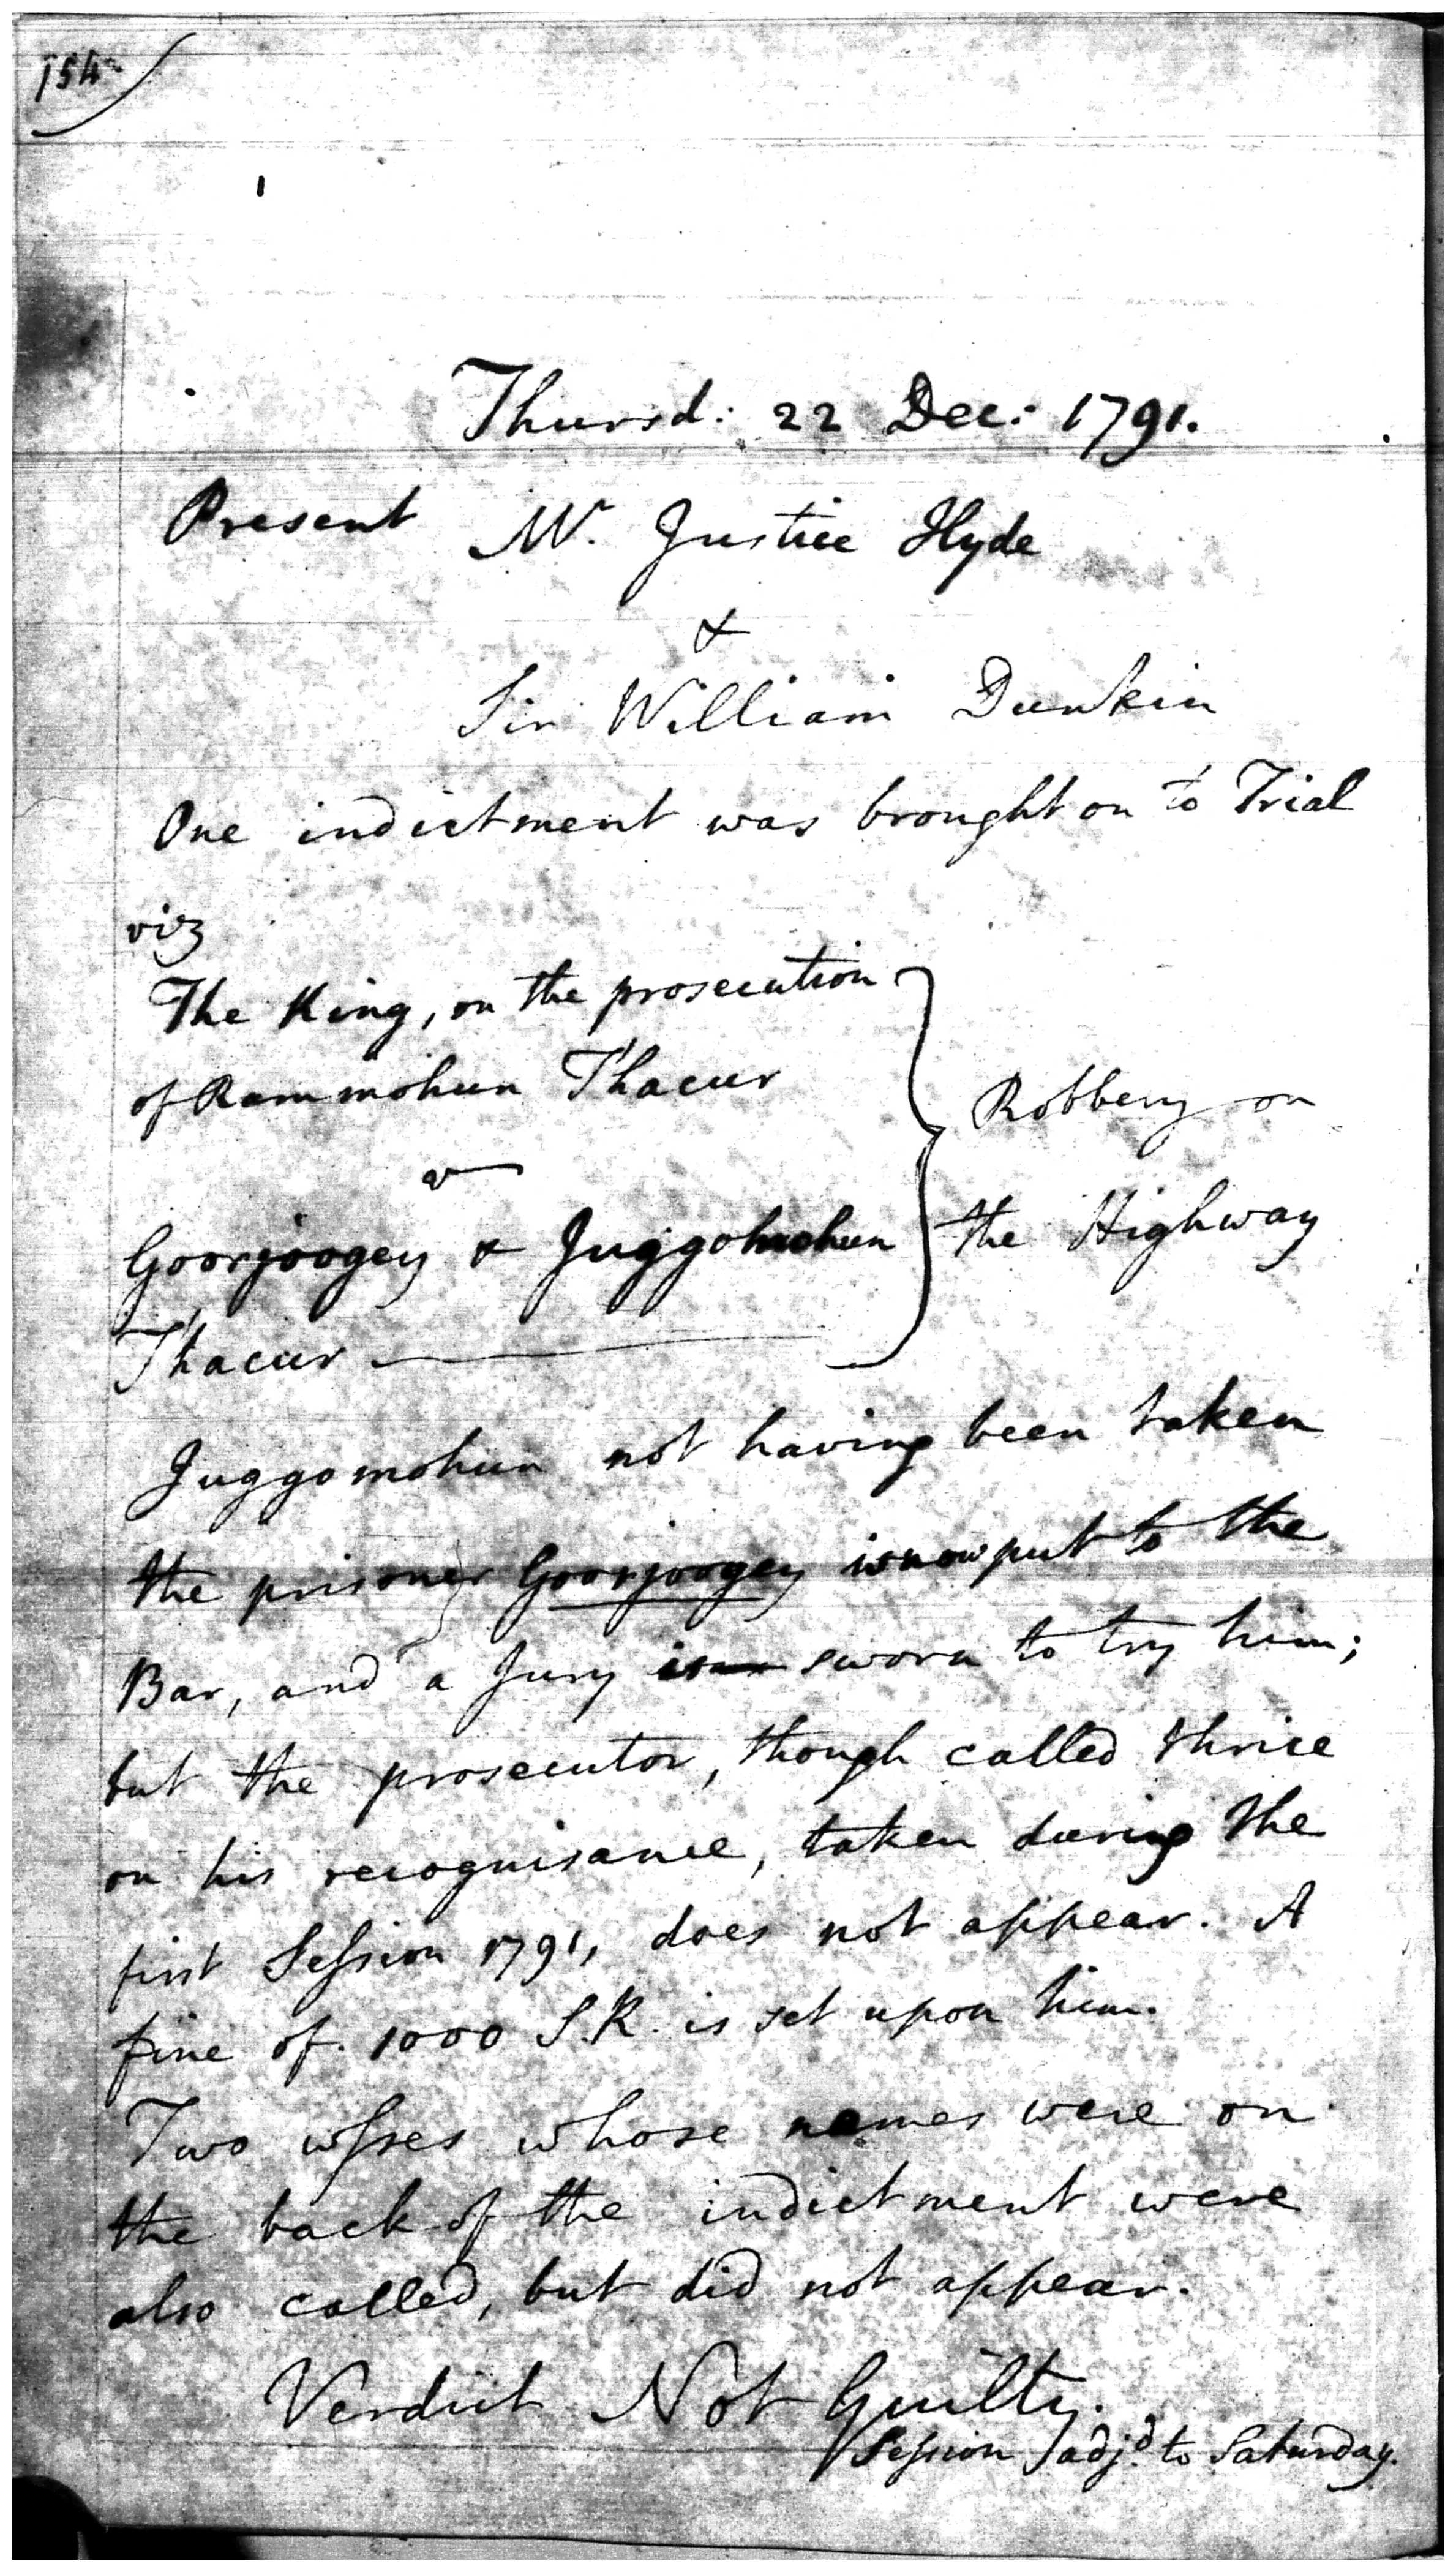 154
Thursd: 22 Dec: 1791.
Present Mr. Justice Hyde
&
Sir William Dunkin
One indictment was brought on to Trial
viz
The King, on the prosecution
of Rammohun Thacur
v
Goorjoogey & Juggomohun
Thacur
Robbery on
the Highway
Juggomohun not having been taken
the prisoner Goorjoogey is now put to the
Bar, and a Jury is sworn to try him;
but the prosecutor, though called thrice
on his recognisance, taken during the
first Session 1791, does not appear. A
fine of 1000 S.R. is set upon him.
Two wsses whose names were on
the back of the indictment were
also called, but did not appear.
Verdict Not Guilty.
Session adjd. to Saturday.